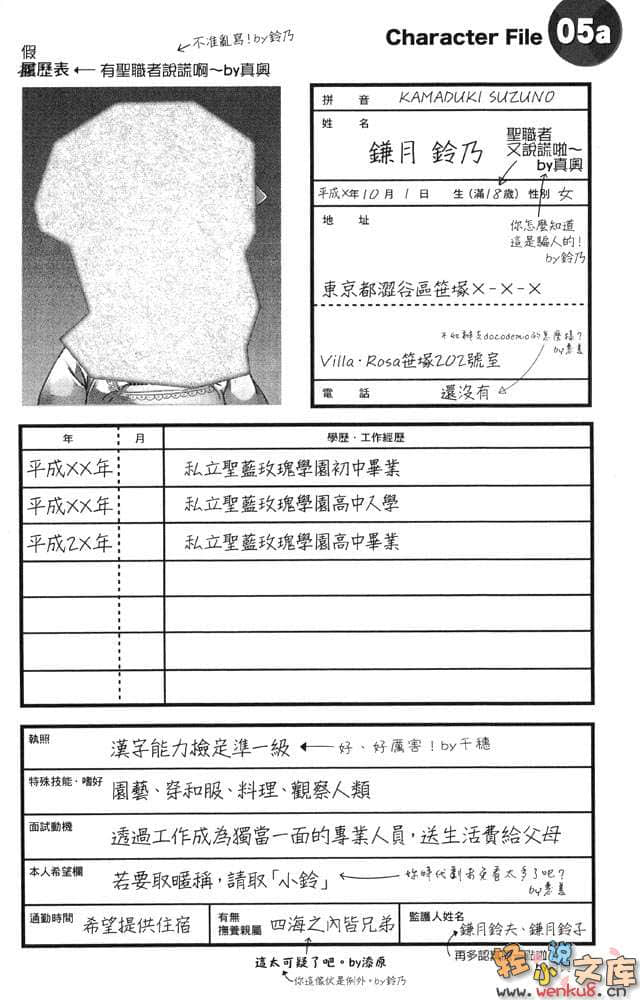 Character File 05a
不准亂寫!by鈴乃
假
履歷表 ← 有聖職者說謊啊～by真奧
拼音 KAMADUKI SUZUNO
姓名 鎌月 鈴乃
聖職者
又說謊啦～
by真奧
平成X年10月1日 生(滿18歲) 性別 女
你怎麼知道
這是騙人的!
by鈴乃
地址
東京都澀谷區笹塚X-X-X
Villa・Rosa笹塚202號室
電話 還沒有
年 月 學歷・工作經歷
平成XX年 私立聖藍玫瑰學園初中畢業
平成XX年 私立聖藍玫瑰學園高中入學
平成2X年 私立聖藍玫瑰學園高中畢業
執照 漢字能力檢定準一級 ← 好、好厲害!by千穗
特殊技能・嗜好 園藝、穿和服、料理、觀察人類
面試動機 透過工作成為獨當一面的專業人員，送生活費給父母
本人希望欄 若要取暱稱，請取「小鈴」
你時代劇看太多了吧?
by惠美
通勤時間 希望提供住宿
有無撫養親屬 四海之內皆兄弟
監護人姓名 鎌月鈴夫、鎌月鈴子
這太可疑了吧。by漆原
你這傢伙是例外。by鈴乃
再多認
輕小說文庫
www.wenku8.cn